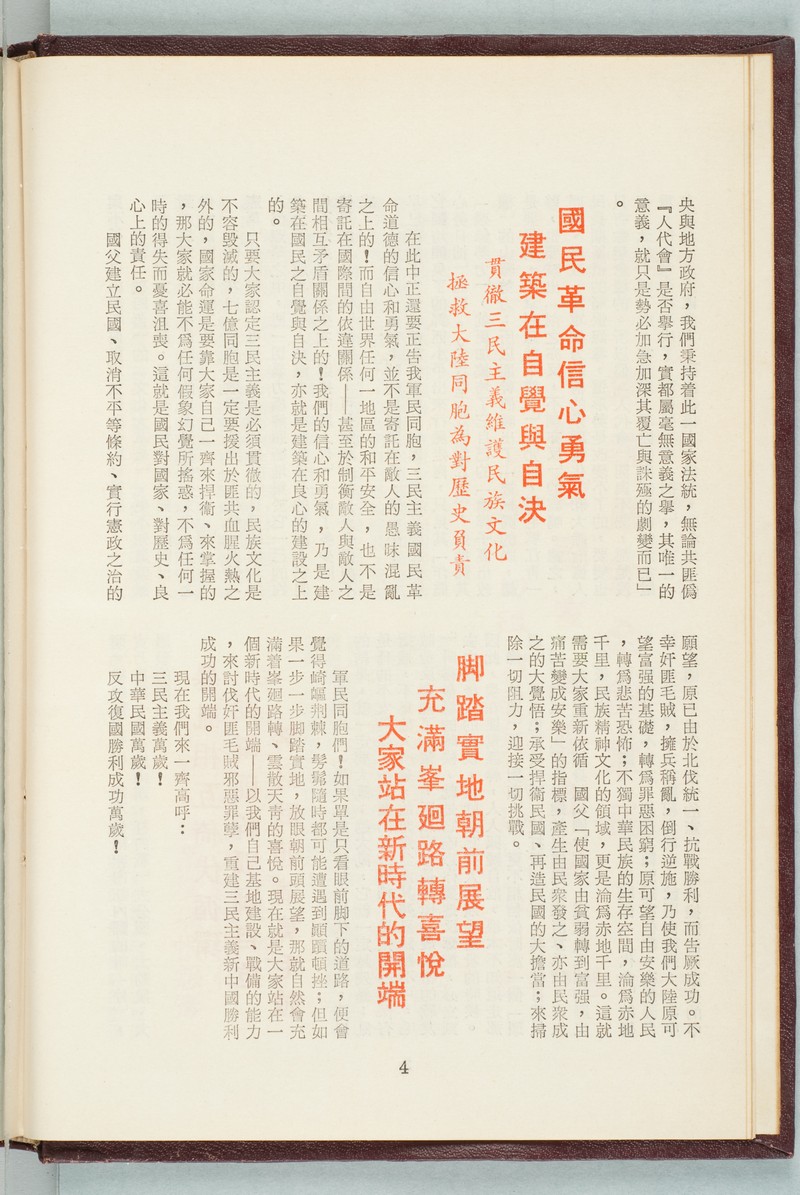 央與地方政府，我們秉持着此一國家法統，無論共匪偽
『人代會』是否舉行，實都屬毫無意義之舉，其唯一的
意義，就只是勢必加急加深其覆亡與誅殛的劇變而已」
。
國民革命信心勇氣
建築在自覺與自決
貫徹三民主義維護民族文化
拯救大陸同胞為對歷史負責
在此中正還要正告我軍民同胞，三民主義國民革
命道德的信心和勇氣，並不是寄託在敵人的愚昧混亂
之上的！而自由世界任何一地區的和平安全，也不是
寄託在國際間的依違關係——甚至於制衡敵人與敵人之
間相互矛盾關係之上的！我們的信心和勇氣，乃是建
築在國民之自覺與自決，亦就是建築在良心的建設之上
的。
只要大家認定三民主義是必須貫徹的，民族文化是
不容毀滅的，七億同胞是一定要援出於匪共血腥火熱之
外的，國家命運是要靠大家自己一齊來捍衞、來掌握的
，那大家就必能不爲任何假象幻覺所搖惑，不爲任何一
時的得失而憂喜沮喪。這就是國民對國家、對歷史、良
心上的責任。
國父建立民國、取消不平等條約、實行憲政之治的
願望，原已由於北伐統一、抗戰勝利，而告厥成功。不
幸奸匪毛賊，擁兵稱亂，倒行逆施，乃使我們大陸原可
望富强的基礎，轉爲罪惡困窮；原可望自由安樂的人民
，轉爲悲苦恐怖；不獨中華民族的生存空間，淪爲赤地
千里，民族精神文化的領域，更是淪爲赤地千里。這就
需要大家重新依循　國父「使國家由貧弱轉到富强，由
痛苦變成安樂」的指標，產生由民衆發之、亦由民衆成
之的大覺悟；承受捍衞民國、再造民國的大擔當；來掃
除一切阻力，迎接一切挑戰。
脚踏實地朝前展望
充滿峯迴路轉喜悅
大家站在新時代的開端
軍民同胞們！如果單是只看眼前脚下的道路，便會
覺得崎嶇荆棘，髣髴隨時都可能遭遇到顚躓頓挫；但如
果一步一步脚踏實地，放眼朝前頭展望，那就自然會充
滿着峯迴路轉、雲散天靑的喜悅。現在就是大家站在一
個新時代的開端——以我們自己基地建設、戰備的能力
，來討伐奸匪毛賊邪惡罪孽，重建三民主義新中國勝利
成功的開端。
現在我們來一齊高呼：
三民主義萬歲！
中華民國萬歲！
反攻復國勝利成功萬歲！
4